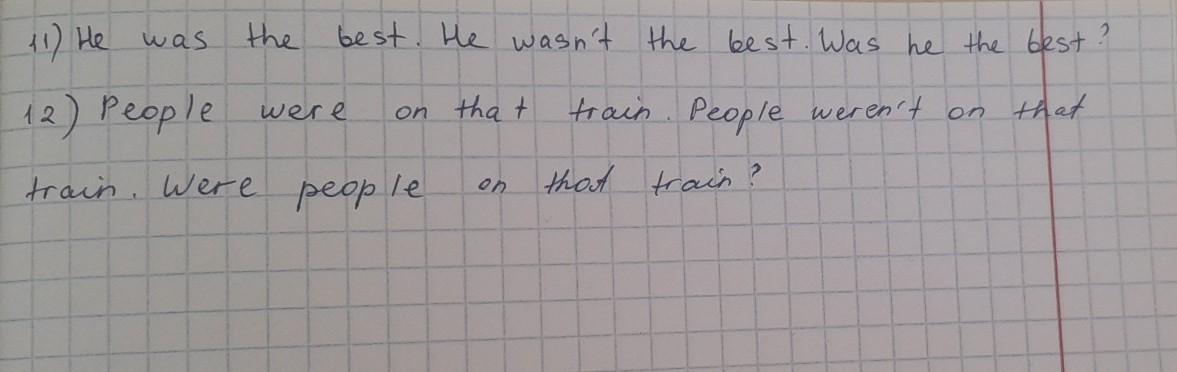 11) He was the best. He wasn't the best. Was he the best?
12) People were on that train. People weren't on that
train. Were people on that train?